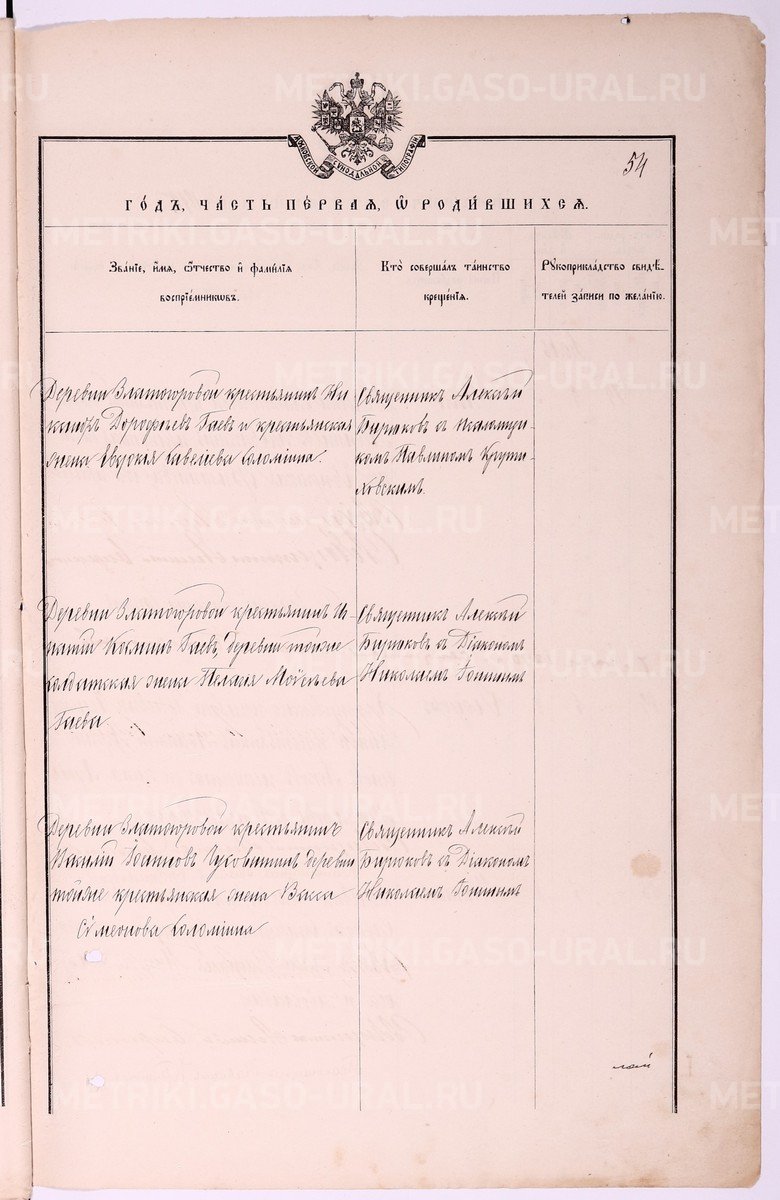 МОСКОВСКОЙ СѴНОДАЛЬНОЙ ТИПОГРАФІИ
54
ГО́ДЪ, ЧА́СТЬ ПЕ́РВАѦ, Ѽ РОДИ́ВШИХСѦ.
Зва́нїе, и҆́мѧ, ѻ҆́тчество и҆ фами́лїѧ
воспрїе́мникѡвъ.
Кто̀ соверша́лъ та́инство
креще́нїѧ.
Рꙋкоприкла́дство свидѣ́-
телей за́писи по жела́нїю.
Деревни Златогоровой крестьянинъ Ни
кандръ Дорофѣевъ Гаевъ и крестьянская
жена Евдокія Савеіева Соломіина.
Священникъ Алексѣй
Бирюковъ съ Псаломщи-
комъ Павлиномъ Крути-
ховскимъ.
Деревни Златогоровой крестьянинъ И-
патій Косминъ Гаевъ, деревни тойже
солдатская жена Пелагія Моѵсеъева
Гаева.
Священникъ Алексѣй
Бирюковъ съ Діакономъ
Николаемъ Іонинымъ
Деревни Златогоровой крестьянинъ
Іоанновъ деревни
тойже крестьянская жена Васса
Сѵмеонова Соломіина
Священникъ Алексѣй
Бирюковъ съ Діакономъ
Николаемъ Іонинымъ
METRIKI.GASO-URAL.RU